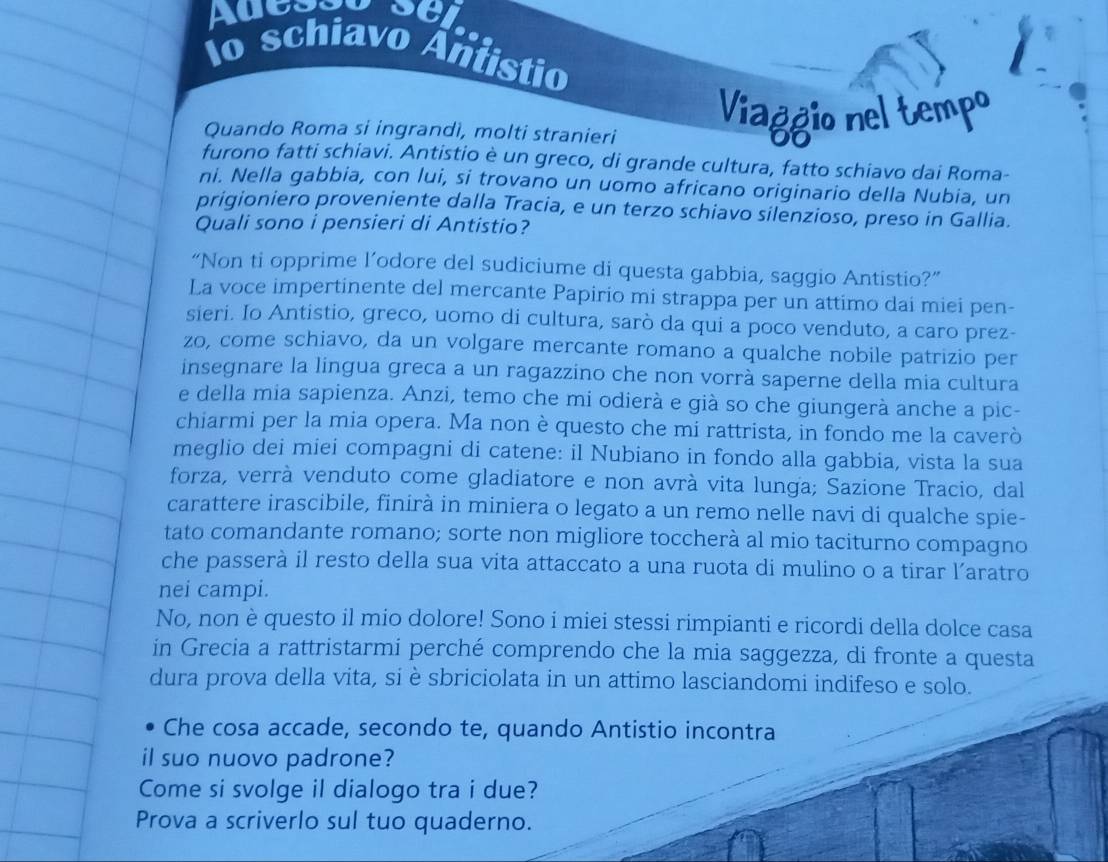 Adesso sei...
lo schiavo Antistio
Viaggio nel tempo
Quando Roma si ingrandì, molti stranieri
furono fatti schiavi. Antistio è un greco, di grande cultura, fatto schiavo dai Roma-
ni. Nella gabbia, con lui, si trovano un uomo africano originario della Nubia, un
prigioniero proveniente dalla Tracia, e un terzo schiavo silenzioso, preso in Gallia.
Quali sono i pensieri di Antistio?
“Non ti opprime l’odore del sudiciume di questa gabbia, saggio Antistio?”
La voce impertinente del mercante Papirio mi strappa per un attimo dai miei pen-
sieri. Io Antistio, greco, uomo di cultura, sarò da qui a poco venduto, a caro prez-
zo, come schiavo, da un volgare mercante romano a qualche nobile patrizio per
insegnare la lingua greca a un ragazzino che non vorrà saperne della mia cultura
e della mia sapienza. Anzi, temo che mi odierà e già so che giungerà anche a pic-
chiarmi per la mia opera. Ma non è questo che mi rattrista, in fondo me la caverò
meglio dei miei compagni di catene: il Nubiano in fondo alla gabbia, vista la sua
forza, verrà venduto come gladiatore e non avrà vita lunga; Sazione Tracio, dal
carattere irascibile, finirà in miniera o legato a un remo nelle navi di qualche spie-
tato comandante romano; sorte non migliore toccherà al mio taciturno compagno
che passerà il resto della sua vita attaccato a una ruota di mulino o a tirar l’aratro
nei campi.
No, non è questo il mio dolore! Sono i miei stessi rimpianti e ricordi della dolce casa
in Grecia a rattristarmi perché comprendo che la mia saggezza, di fronte a questa
dura prova della vita, si è sbriciolata in un attimo lasciandomi indifeso e solo.
• Che cosa accade, secondo te, quando Antistio incontra
il suo nuovo padrone?
Come si svolge il dialogo tra i due?
Prova a scriverlo sul tuo quaderno.